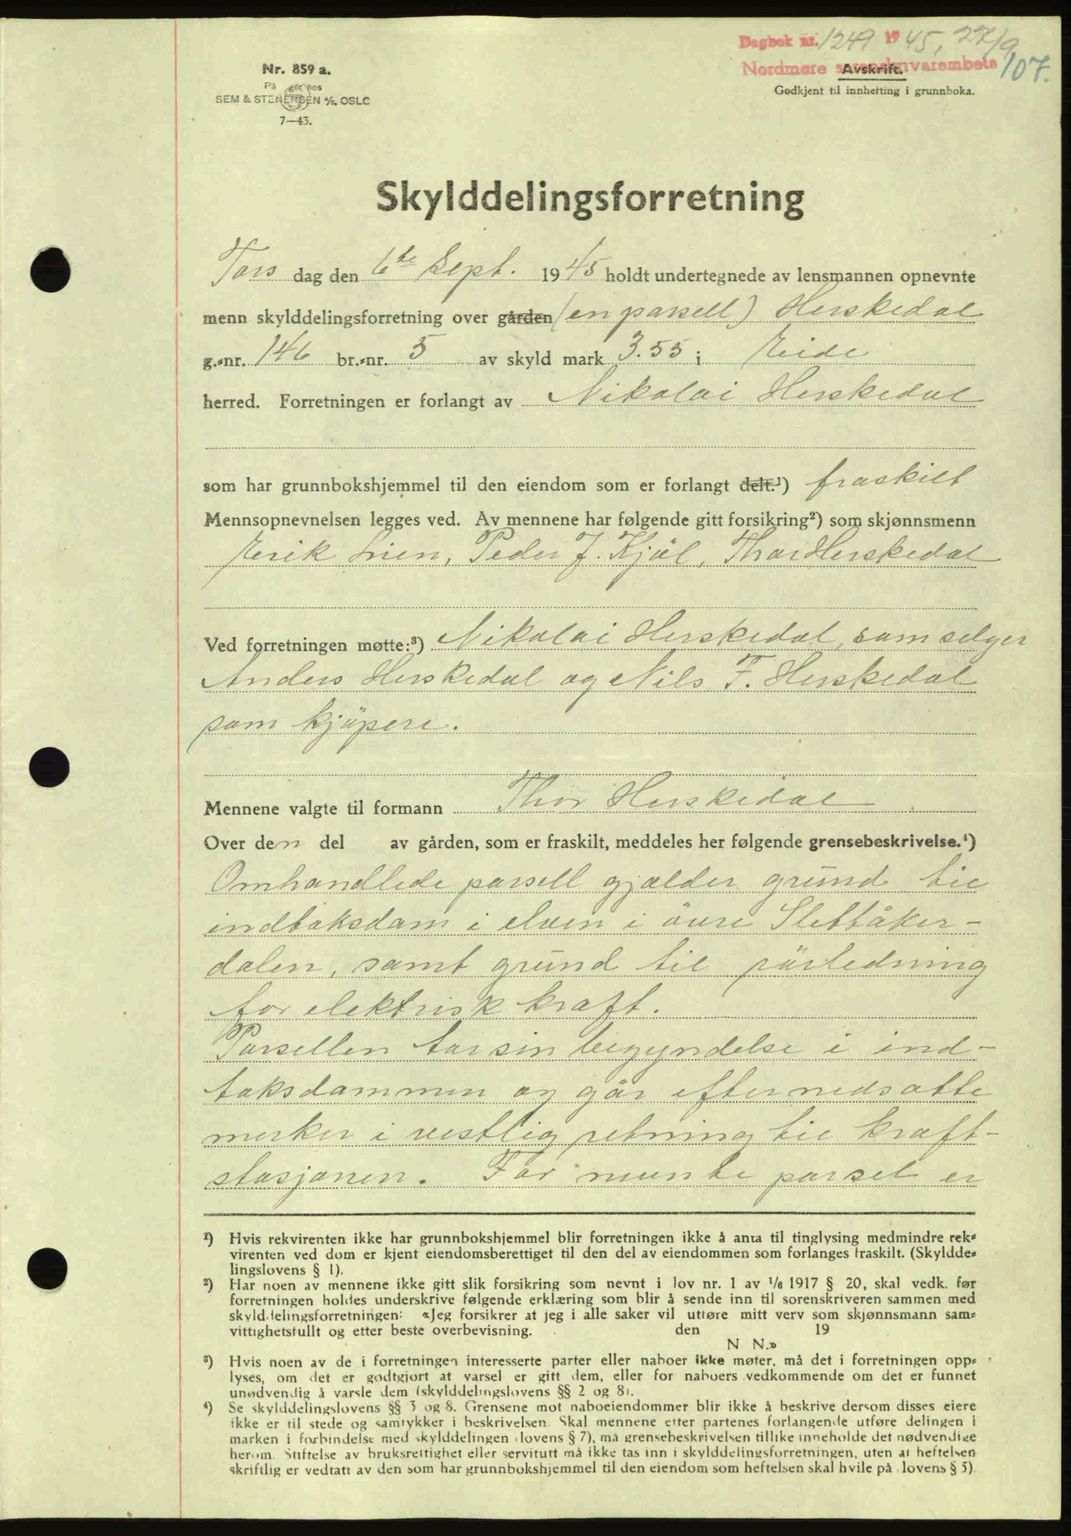 Dagbok nr. 1249 1945, 27/9
Nordmøre sorenskriverembete 107.
Avskrift.
Godkjent til innhefting i grunnboka.
Nr. 859 a.
På hos
SEM & STENERSEN A/S, OSLO
7—43.
Skylddelingsforretning
Tors dag den 6te Sept. 1945 holdt undertegnede av lensmannen opnevnte
menn skylddelingsforretning over gården (en parsell) Herskedal
g.-nr. 146 br.-nr. 5 av skyld mark 3.55 i Eide
herred. Forretningen er forlangt av Nikolai Herskedal
som har grunnbokshjemmel til den eiendom som er forlangt delt.¹) fraskilt
Mennsopnevnelsen legges ved. Av mennene har følgende gitt forsikring²) som skjønnsmenn
Erik Lien, Peder J. Kjöl, Thor Herskedal
Ved forretningen møtte:³) Nikolai Herskedal, som selger
Anders Herskedal og Nils F. Herskedal
som kjöpere.
Mennene valgte til formann Thor Herskedal
Over den del av gården, som er fraskilt, meddeles her følgende grensebeskrivelse.⁴)
Omhandlede parsell gjælder grund til
indtaksdam i elven i övre Slettåker-
dalen, samt grund til rörledning
for elektrisk kraft.
Parsellen tar sin begyndelse i ind-
taksdammen og går efter nedsatte
merker i vestlig retning til kraft-
stasjonen. For nevnte parsel er
¹) Hvis rekvirenten ikke har grunnbokshjemmel blir forretningen ikke å anta til tinglysing medmindre rek-
virenten ved dom er kjent eiendomsberettiget til den del av eiendommen som forlanges fraskilt. (Skyldde-
lingslovens § 1).
²) Har noen av mennene ikke gitt slik forsikring som nevnt i lov nr. 1 av 1/6 1917 § 20, skal vedk. før
forretningen holdes underskrive følgende erklæring som blir å sende inn til sorenskriveren sammen med
skylddelingsforretningen: «Jeg forsikrer at jeg i alle saker vil utføre mitt verv som skjønnsmann sam-
vittighetsfullt og etter beste overbevisning. den 19
N N.»
³) Hvis noen av de i forretningen interesserte parter eller naboer ikke møter, må det i forretningen opp-
lyses, om det er godtgjort at varsel er gitt dem, eller for naboers vedkommende om det er funnet
unødvendig å varsle dem (skylddelingslovens §§ 2 og 8).
⁴) Se skylddelingslovens §§ 3 og 8. Grensene mot naboeiendommer blir ikke å beskrive dersom disses eiere
ikke er til stede og samtykker i beskrivelsen. Skal mennene etter partenes forlangende utføre delingen i
marken i forbindelse med skylddelingen (lovens § 7), må grensebeskrivelsen tillike inneholde det nødvendige
herom. Stiftelse av bruksrettighet eller servitutt må ikke tas inn i skylddelingsforretningen, uten at heftelsen
skriftlig er vedtatt av den som har grunnbokshjemmel til den eiendom som heftelsen skal hvile på (lovens § 5).